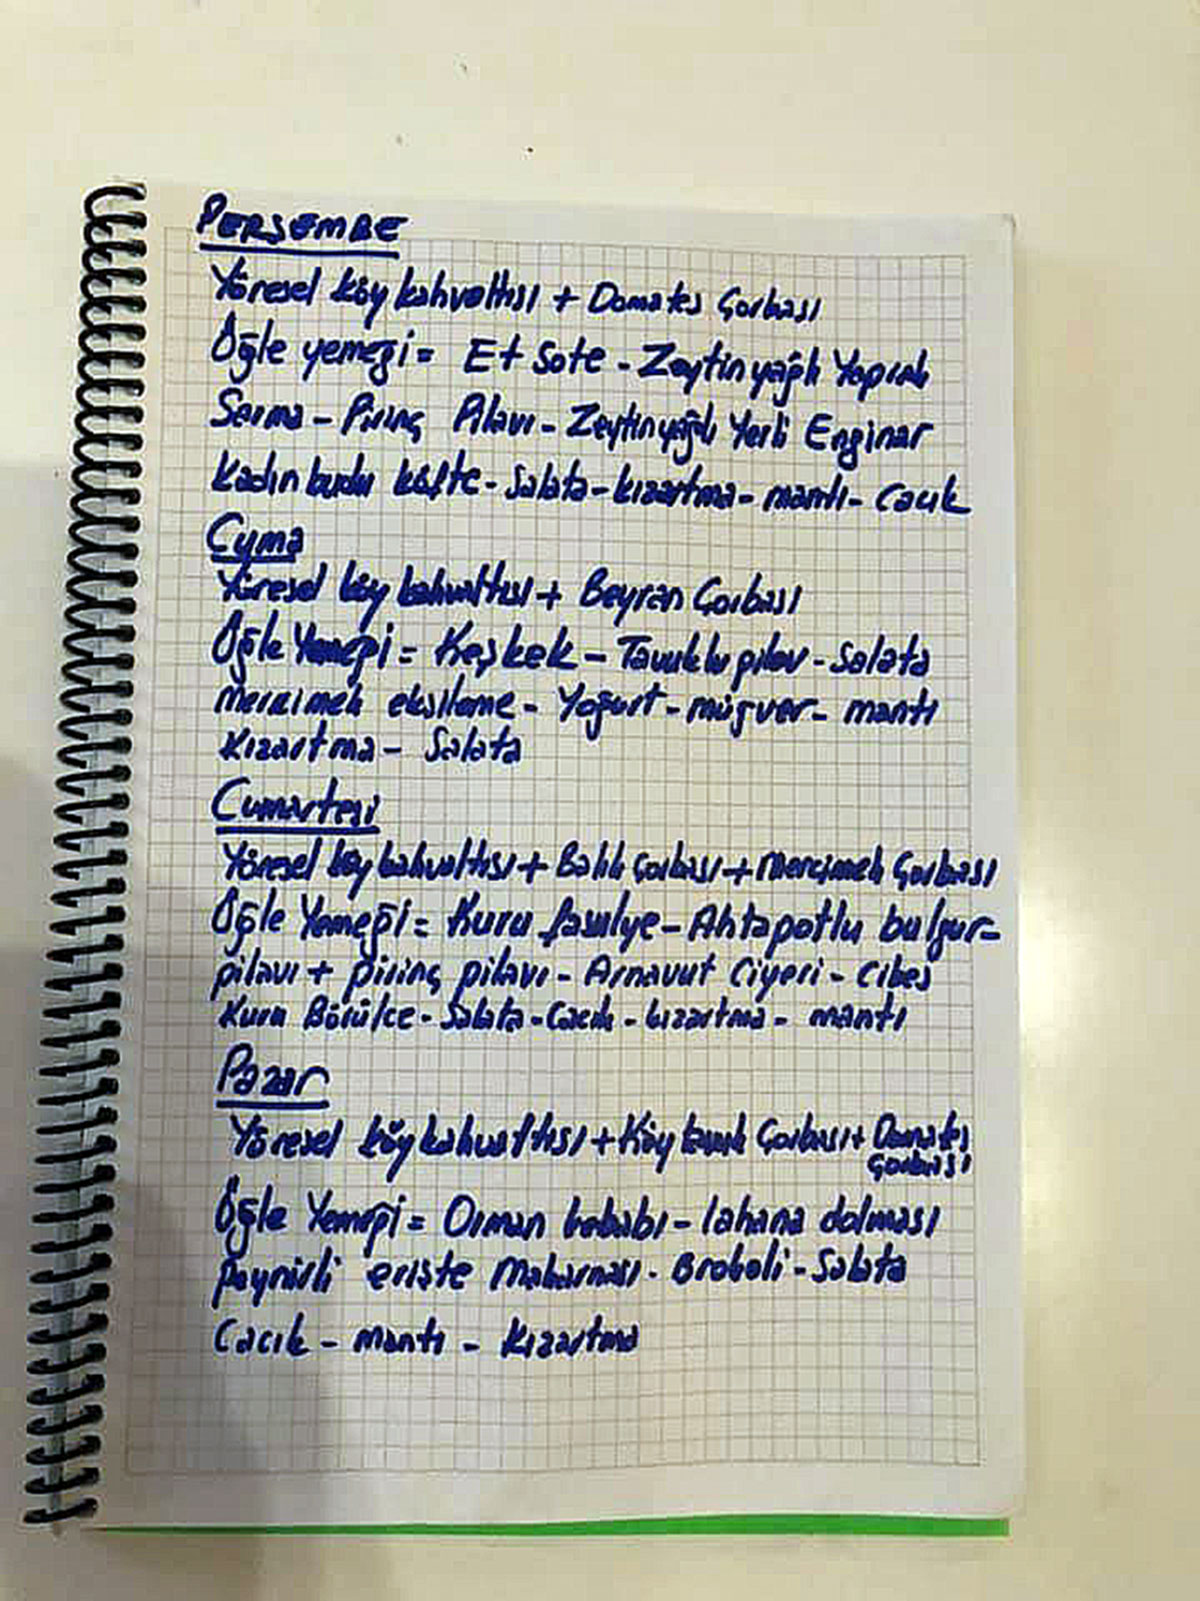 PERŞEMBE
Yöresel köy kahvaltısı + Domates Çorbası
Öğle yemeği = Et Sote - Zeytinyağlı Yaprak
Sarma - Pirinç Pilavı - Zeytinyağlı Yerli Enginar
Kadın budu köfte - Salata - kızartma - mantı - Cacık
Cuma
Yöresel köy kahvaltısı + Beyran Çorbası
Öğle Yemeği = Keşkek - Tavuklu pilav - Salata
Mercimek ekşileme - Yoğurt - müçver - mantı
Kızartma - Salata
Cumartesi
Yöresel köy kahvaltısı + Balık Çorbası + Mercimek Çorbası
Öğle Yemeği = Kuru fasulye - Ahtapotlu bulgur-
pilavı + pirinç pilavı - Arnavut Ciyeri - Cibes
Kuru Börülce - Salata - Cacık - kızartma - mantı
Pazar
Yöresel köy kahvaltısı + Köy tavuk Çorbası + Domates
Çorbası
Öğle Yemeği = Orman kebabı - lahana dolması
Peynirli erişte Makarnası - Brokoli - Salata
Cacık - mantı - Kızartma